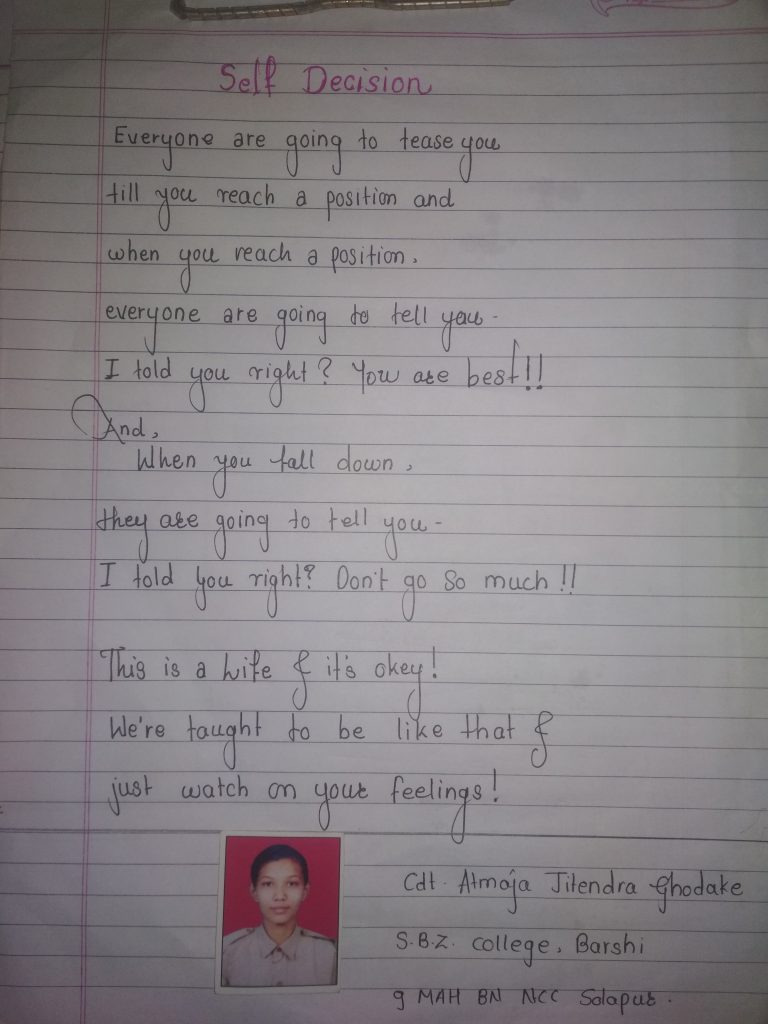 Self Decision
Everyone are going to tease you
till you reach a position and
when you reach a position,
everyone are going to tell you -
I told you right? You are best!!
And,
When you fall down,
they are going to tell you -
I told you right? Don't go so much!!
This is a life & it's okey!
We're taught to be like that &
just watch on your feelings!
Cdt. Atmaja Jitendra Ghodake
S.B.Z. college, Barshi
9 MAH BN NCC Solapur.